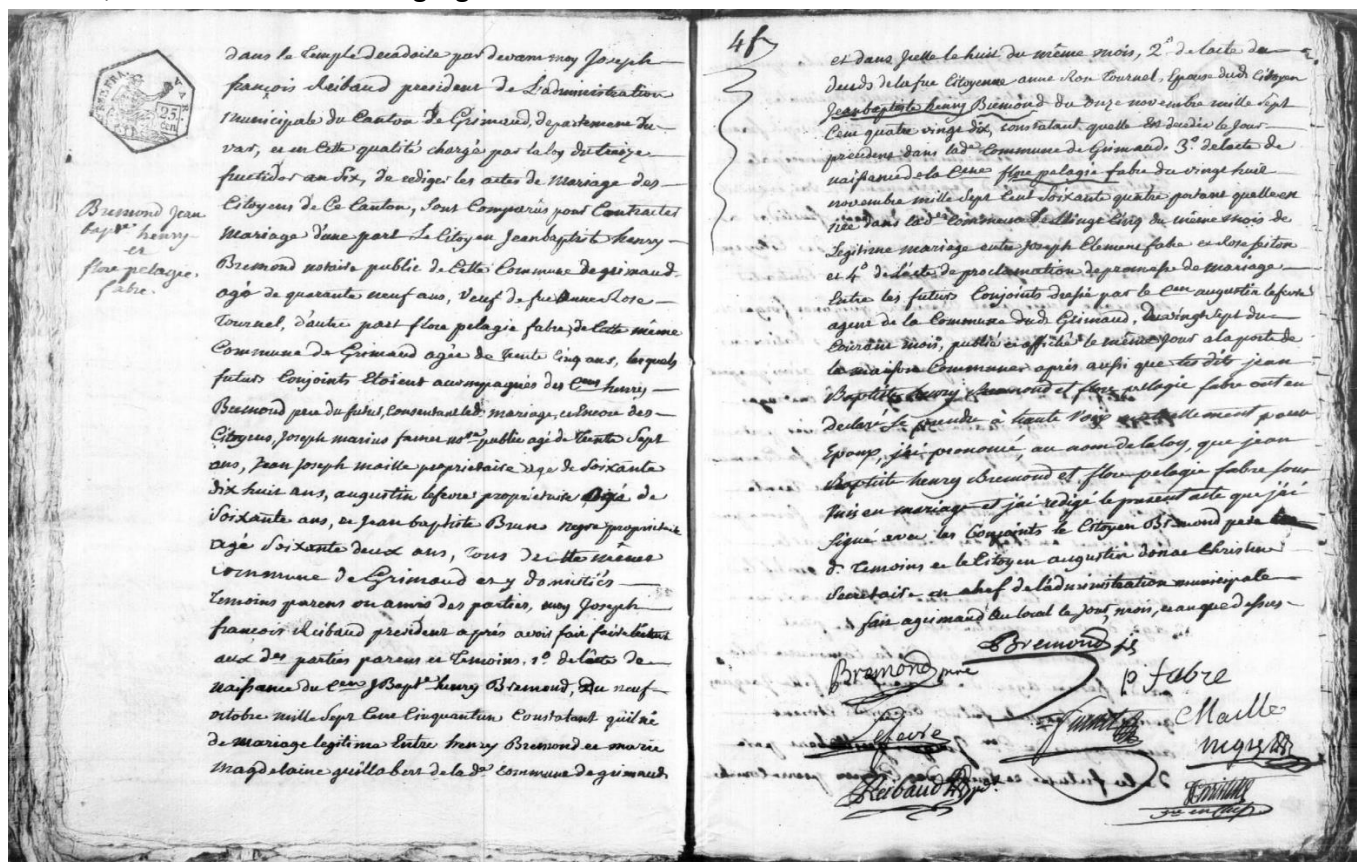 VAR
25.
cen
Bremond Jean
bapte henry
et
flore pelagie
fabre.
dans le temple decadaire par devant moy Joseph
françois Reibaud president de L'administration
municipale du Canton de Grimaud, departement du
var, et en Cette qualité chargé par la loy du treize
fructidor an six, de rediger les actes de Mariage des
Citoyens de Ce Canton, sont Comparus pour Contracter
Mariage d'une part Le Citoyen Jeanbaptiste henry
Bremond notaire public de Cette Commune de grimaud
agé de quarante neuf ans, Veuf de fue Anne Rose
Tournel, d'autre part flore pelagie fabre, de Cette même
Commune de Grimaud agée de trente Cinq ans, lesquels
futurs Conjoints Etoient accompagnés des Cens henry
Bremond pere du futur, Consentant led. mariage, et Encore des
Citoyens, Joseph marius nore public agé de Trente Sept
ans, Jean Joseph maille proprietaire agé de Soixante
dix huit ans, augustin lefevre proprietaire Agé de
Soixante ans, et Jean baptiste Brun negre proprietaire
agé Soixante deux ans, Tous de Cette même
Commune de Grimaud et y domiciliés
temoins parens ou amis des parties, moy Joseph
francois Reibaud president après avoir fait faire lecture
aux des parties parens et Temoins. 1o. de l'acte de
naissance du Cen J Bapte henry Bremond, Du neuf
octobre mille Sept Cent Cinquantun Constatant quil né
de mariage legitime Entre henry Bremond et marie
Magdelaine guillabert de la de commune de grimaud
48
et dans Icelle le huit du même mois, 2o de lacte de
deceds de la fue Citoyenne anne Rose Tournel, Epouse dud. Citoyen
Jeanbaptiste henry Bremond du onze novembre mille Sept
Cent quatre vingt dix, constatant quelle Est decedée le Jour
precedent dans lade Commune de Grimaud. 3o de lacte de
naissance de la Cene flore pelagie fabre du vingt huit
novembre mille Sept Cent Soixante quatre portant quelle est
née dans lade Commune Le Vingt Cinq du même mois de
Legitime mariage entre Joseph Clement fabre et Rose feiton
et 4o de l'acte de proclamation de promesse de mariage
Entre les futurs Conjoints dressé par le Cen augustin lefevre
agent de la Commune dud. Grimaud, du vingt Sept du
Courant mois, publié et affiché le même Jour a la porte de
la maison Commune après aussi que les dits jean
Baptiste henry Bremond et flore pelagie fabre ont eu
declaré Se prendre à haute Voix mutuellement pour
Epoux, j'ai prononcé au nom de la loy, que jean
Baptiste henry Bremond et flore pelagie fabre sont
Unis en mariage et j'ai redigé le present acte que j'ai
Signé avec les Conjoints le Citoyen Bremond pere
Temoins et le Citoyen augustin donat Christine
Secretaire en chef de l'administration municipale
fait a grimaud au local le Jour, mois, et an que dessus
Bremond fs
Bremond pere
p fabre
Lefevre
Maille
negre
Reibaud pdt.